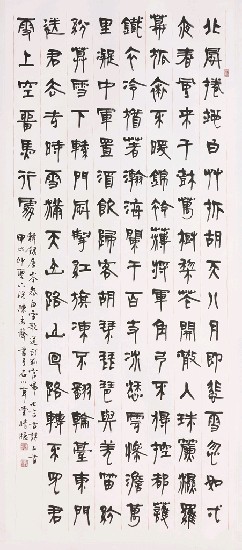 北風捲地白草折胡天八月即飛雪忽如弌
夜春風來千樹萬樹梨花開散入珠簾濕羅
幕狐裘不煖錦衾薄將軍角弓不得控都護
鐵衣冷猶著瀚海闌干百丈冰愁雲慘澹萬
里凝中軍置酒飲歸客胡琴琵琶與羌笛紛
紛暮雪下轅門風掣紅旗凍不翻輪臺東門
送君去去時雪滿天山路山迴路轉不見君
雪上空留馬行處
錄唐岑參白雪歌送武判官歸京七言古詩一首